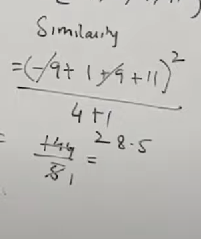 Similarity
=(-9+1+9+11)²
4+1
= 144
5 1
= 28.5